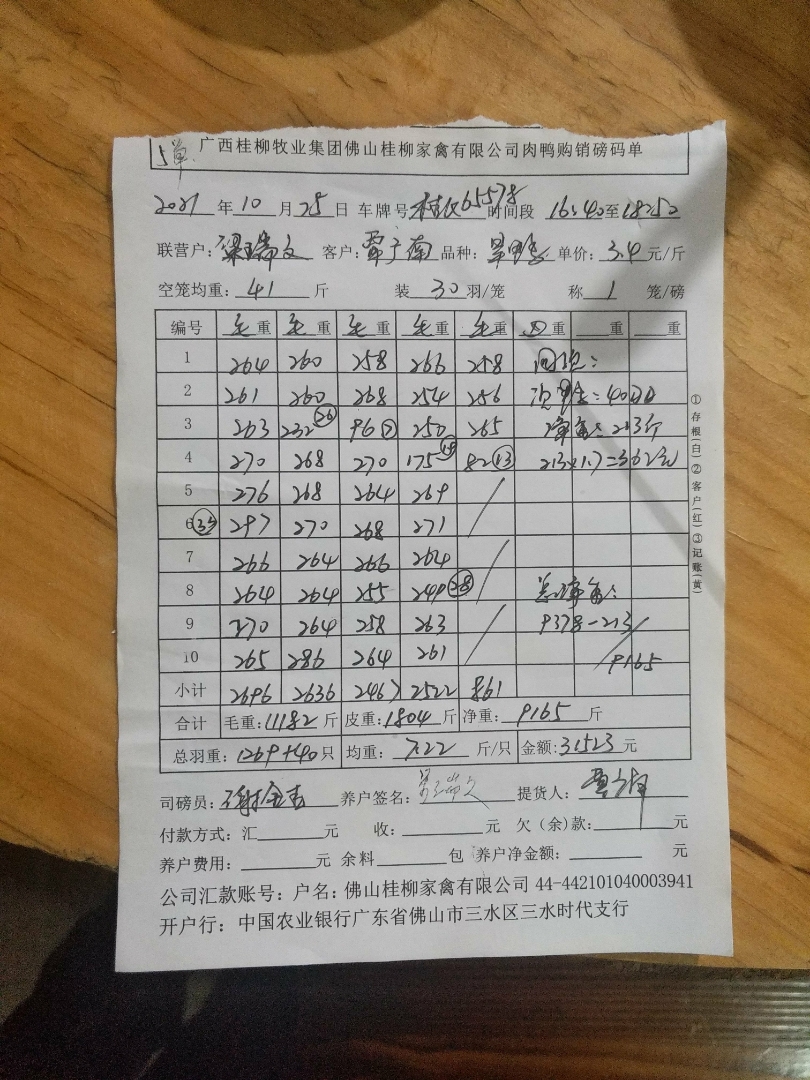 5单 广西桂柳牧业集团佛山桂柳家禽有限公司肉鸭购销磅码单
2021年10月25日 车牌号 65578 时间段 16:40至18:50
联营户:梁瑞文 客户:覃广南 品种: 单价:3.4元/斤
空笼均重:41斤 装30羽/笼 称1笼/磅
编号 毛重 毛重 毛重 毛重 毛重 回重 重 重
1 264 260 258 266 258
2 261 260 268 254 256 :40只
3 263 232 (26) 96 250 265 净重:213斤
4 270 268 270 175 82 (13) 213×1.7=362元
5 276 268 264 269 /
6 (33) 297 270 268 271
7 266 264 266 264 /
8 264 264 255 249 (28) 总净重:
9 270 264 258 263 / 9378-213
10 265 286 264 261 /9165
小计 2696 2636 2467 2522 861
合计 毛重:11182斤 皮重:1804斤 净重:9165斤
总羽重:1269+40只 均重:7.22斤/只 金额:31523元
司磅员:谢金 养户签名:梁瑞文 提货人:覃
付款方式:汇 元 收: 元 欠(余)款: 元
养户费用: 元 余料 包 养户净金额: 元
公司汇款账号:户名:佛山桂柳家禽有限公司 44-442101040003941
开户行:中国农业银行广东省佛山市三水区三水时代支行
①存根(白)②客户(红)③记账(黄)